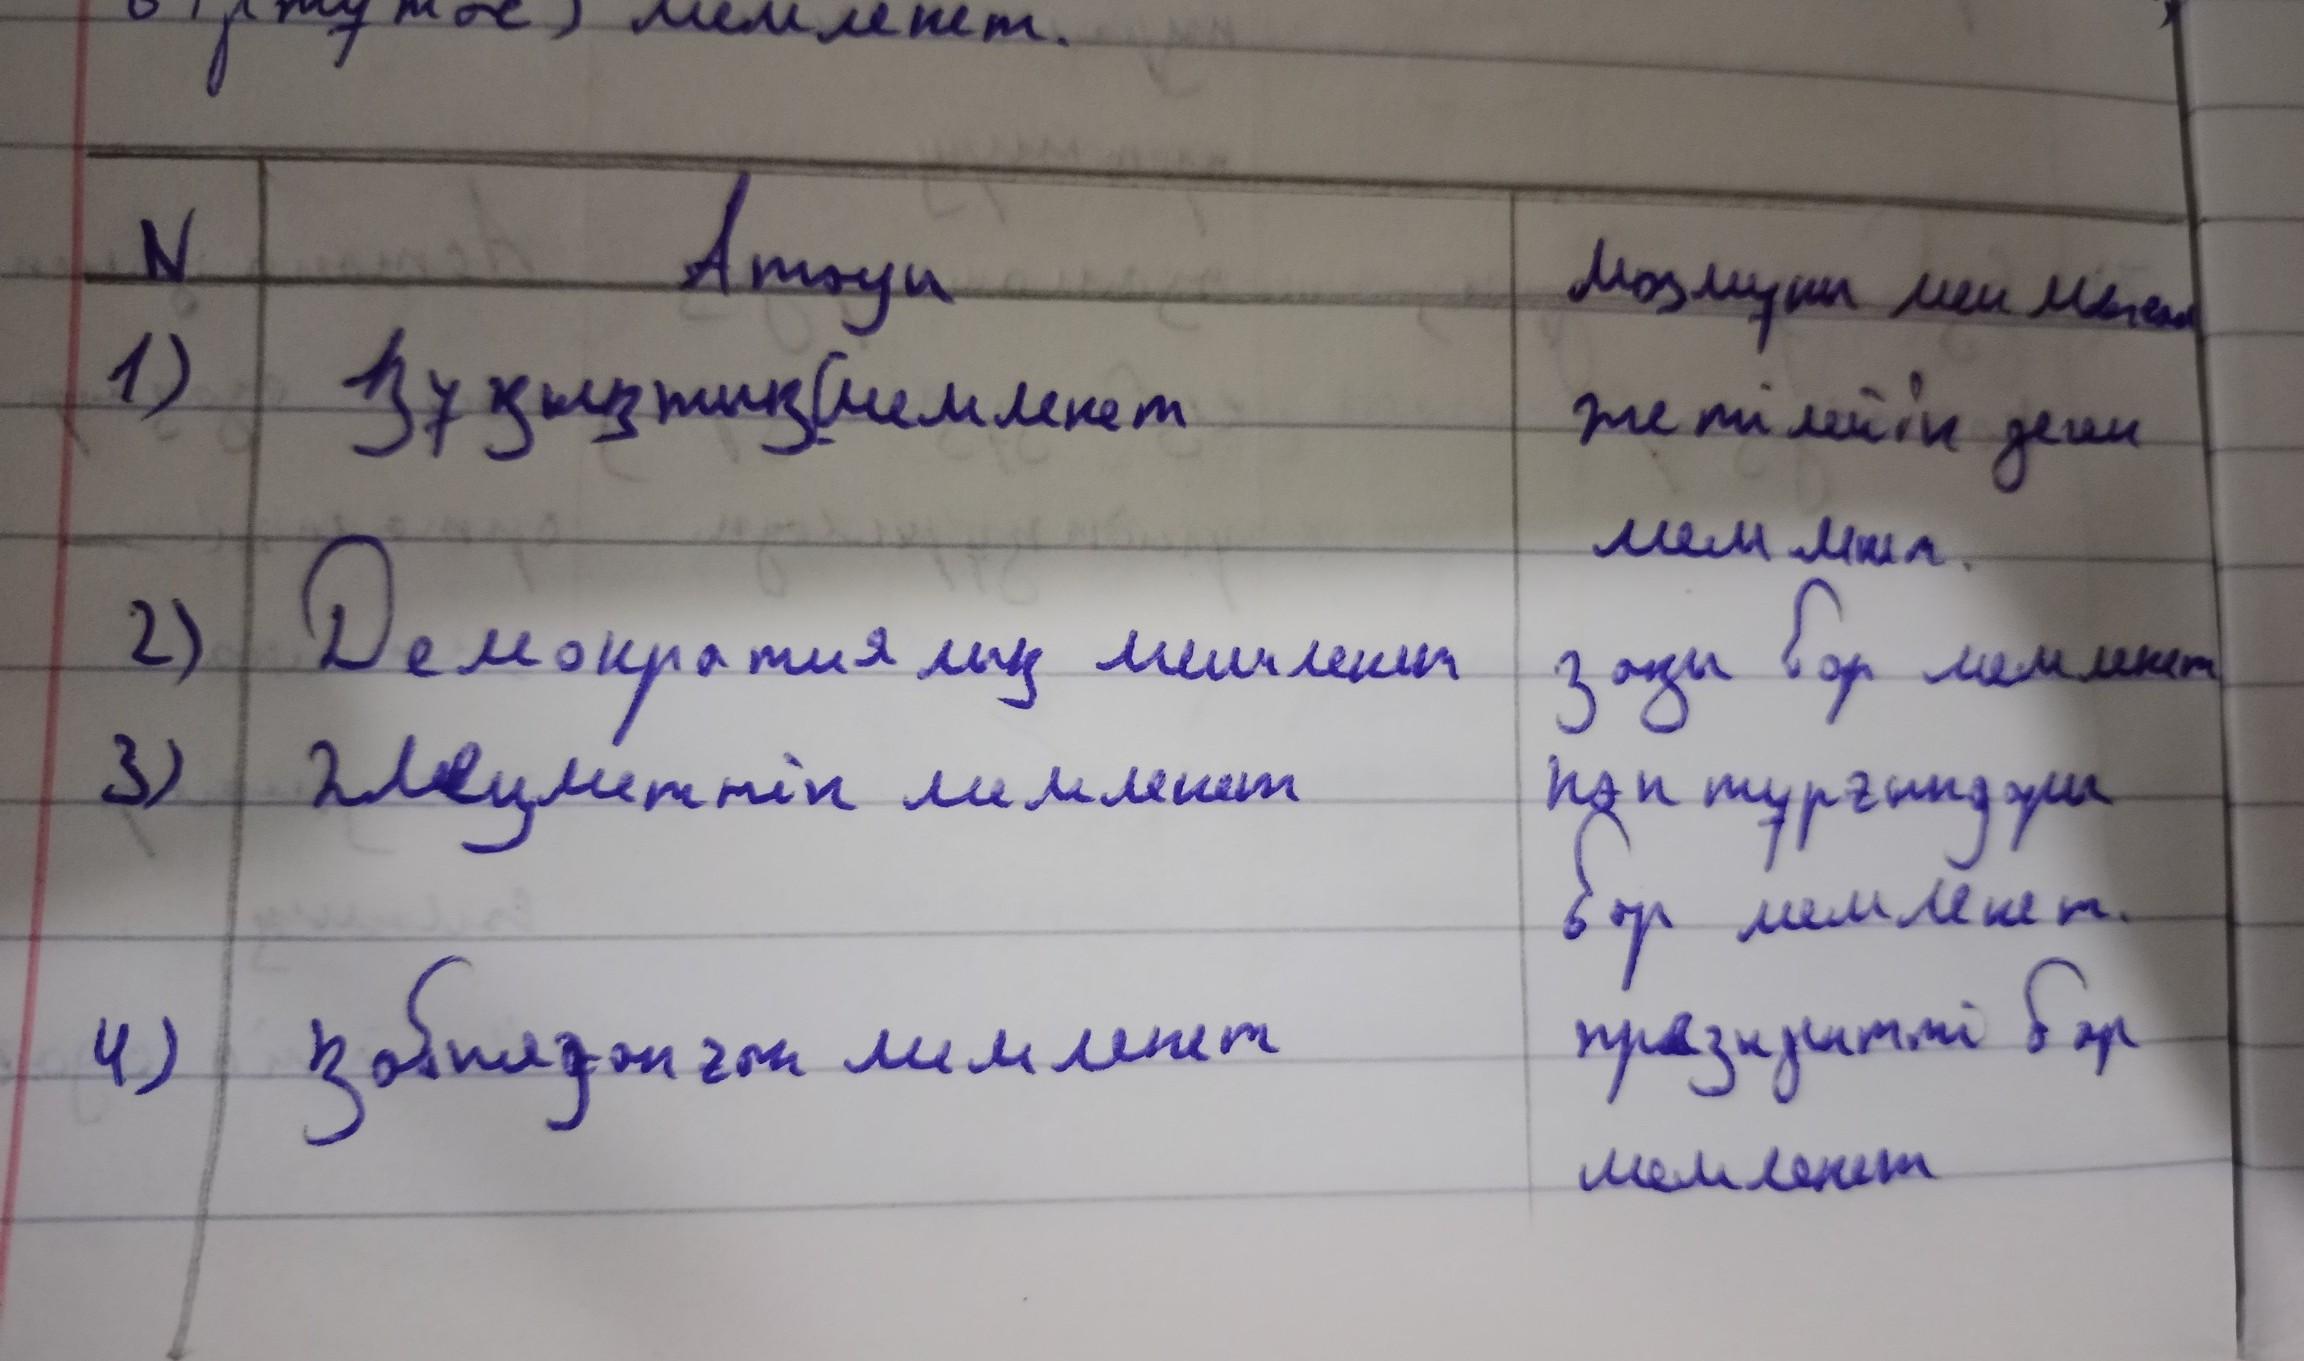 біртұтас) мемлекет.
N Атауы Мазмұны мен
1) Құқықтық мемлекет жетілейік деген
мемлекет.
2) Демократиялық мемлекет заңы бар мемлекет
3) мемлекет көп тұрғындары
бар мемлекет.
4) мемлекет президентті бар
мемлекет